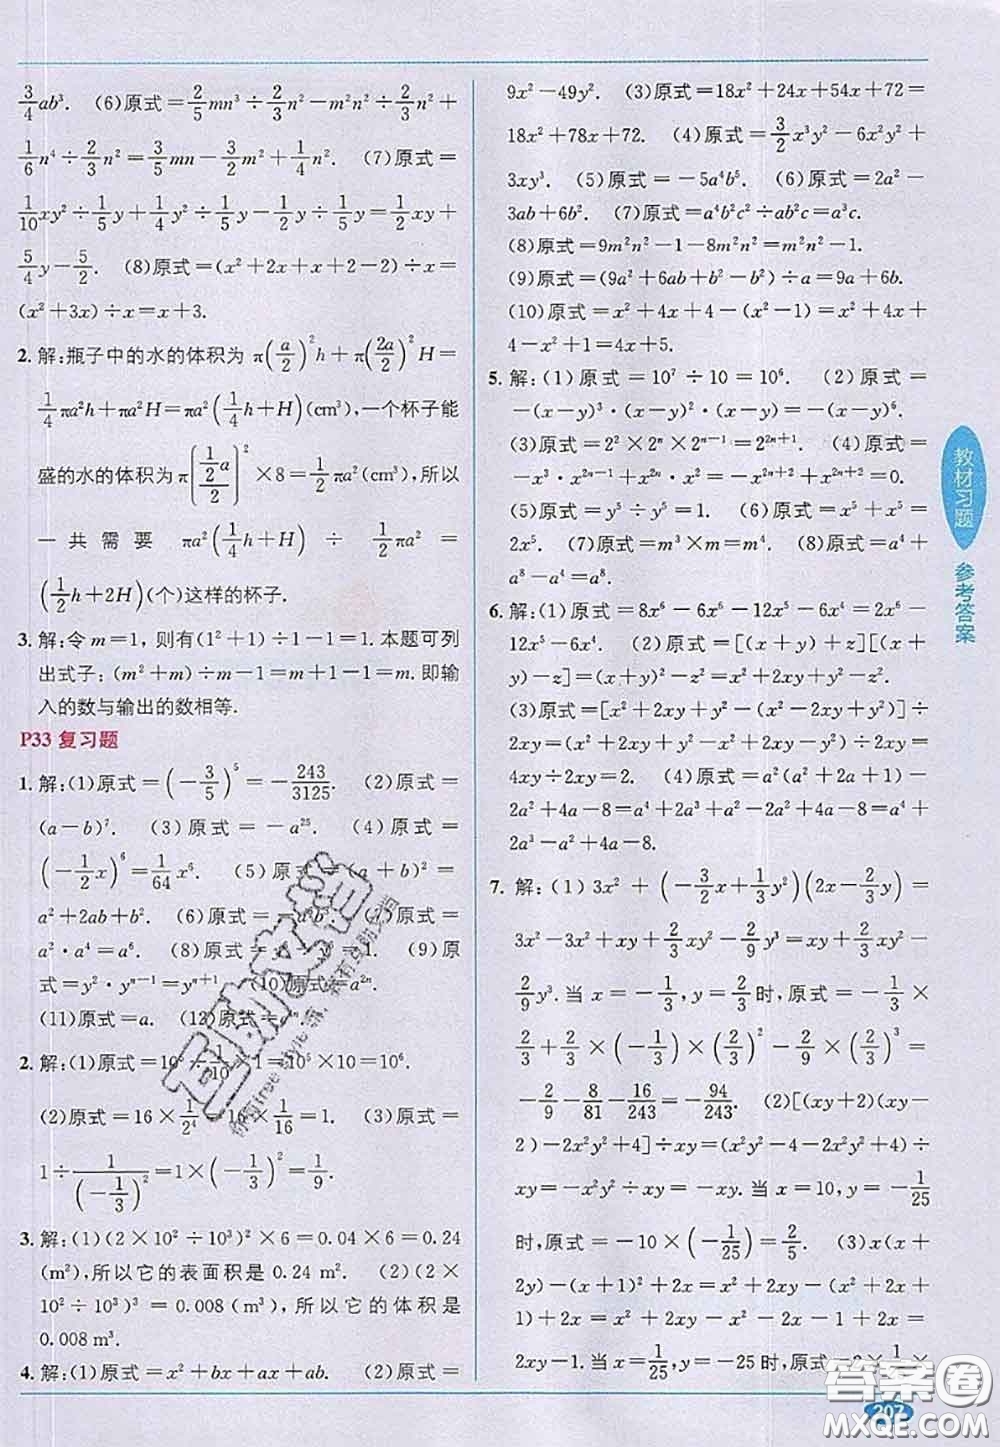 3/4ab³. (6)原式=2/5mn³÷2/3n²-m²n²÷2/3n²+
1/6n⁴÷2/3n²=3/5mn-3/2m²+1/4n². (7)原式=
1/10xy²÷1/5y+1/4y²÷1/5y-1/2y÷1/5y=1/2xy+
5/4y-5/2. (8)原式=(x²+2x+x+2-2)÷x=
(x²+3x)÷x=x+3.
2. 解:瓶子中的水的体积为 π(a/2)²h+π(2a/2)²H=
1/4πa²h+πa²H=πa²(1/4h+H)(cm³),一个杯子能
盛的水的体积为π[(1/2a)/2]²×8=1/2πa²(cm³),所以
一共需要 πa²(1/4h+H)÷1/2πa²=
(1/2h+2H)(个)这样的杯子.
3. 解:令m=1,则有(1²+1)÷1-1=1.本题可列
出式子:(m²+m)÷m-1=m.即输
入的数与输出的数相等.
P33 复习题
1. 解:(1)原式=(-3/5)⁵=-243/3125. (2)原式=
(a-b)⁷. (3)原式=-a²⁵. (4)原式=
(-1/2x)⁶=1/64x⁶. (5)原式=(a+b)²=
a²+2ab+b². (6)原式=
a²·a⁴=a⁶. (8)原式= 1. (9)原
式=y²·yⁿ⁻¹=yⁿ⁺¹. (10)原式=a²ⁿ.
(11)原式=a. (12)原式=
2. 解:(1)原式=10⁵÷1/10=10⁵×10=10⁶.
(2)原式=16×1/2⁴=16×1/16=1. (3)原式=
1÷1/(-1/3)²=1×(-1/3)²=1/9.
3. 解:(1)(2×10²÷10³)²×6=0.04×6=0.24
(m²),所以它的表面积是0.24 m². (2)(2×
10²÷10³)³=0.008(m³),所以它的体积是
0.008 m³.
4. 解:(1)原式=x²+bx+ax+ab. (2)原式=
9x²-49y². (3)原式=18x²+24x+54x+72=
18x²+78x+72. (4)原式=3/2x³y²-6x²y²+
3xy³. (5)原式=-5a⁴b⁵. (6)原式=2a²-
3ab+6b². (7)原式=a⁴b²c²÷ab²c=a³c.
(8)原式=9m²n²-1-8m²n²=m²n²-1.
(9)原式=(9a²+6ab+b²-b²)÷a=9a+6b.
(10)原式=x²+4x+4-(x²-1)=x²+4x+
4-x²+1=4x+5.
5. 解:(1)原式=10⁷÷10=10⁶. (2)原式=
-(x-y)³·(x-y)²·(x-y)=-(x-y)⁶.
(3)原式=2²×2ⁿ×2ⁿ⁻¹=2²ⁿ⁺¹. (4)原式=
-x³·x²ⁿ⁻¹+x²ⁿ·x²=-x²ⁿ⁺²+x²ⁿ⁺²=0.
(5)原式=y⁵÷y⁵=1. (6)原式=x⁵+x⁵=
2x⁵. (7)原式=m³×m=m⁴. (8)原式=a⁴+
a⁸-a⁴=a⁸.
6. 解:(1)原式=8x⁶-6x⁴-12x⁵-6x⁴=2x⁶-
12x⁵-6x⁴. (2)原式=[(x+y)+z][(x+
y)-z]=(x+y)²-z²=x²+2xy+y²-z².
(3)原式=[x²+2xy+y²-(x²-2xy+y²)]÷
2xy=(x²+2xy+y²-x²+2xy-y²)÷2xy=
4xy÷2xy=2. (4)原式=a²(a²+2a+1)-
2a²+4a-8=a⁴+2a³+a²-2a²+4a-8=a⁴+
2a³-a²+4a-8.
7. 解:(1)3x²+(-3/2x+1/3y²)(2x-2/3y)=
3x²-3x²+xy+2/3xy²-2/9y³=xy+2/3xy²-
2/9y³.当x=-1/3,y=2/3时,原式=-1/3×
2/3+2/3×(-1/3)×(2/3)²-2/9×(2/3)³=
-2/9-8/81-16/243=-94/243. (2)[(xy+2)(xy-
2)-2x²y²+4]÷xy=(x²y²-4-2x²y²+4)÷
xy=-x²y²÷xy=-xy.当x=10,y=-1/25
时,原式=-10×(-1/25)=2/5. (3)x(x+
2y)-(x+1)²+2x=x²+2xy-(x²+2x+
1)+2x=x²+2xy-x²-2x-1+2x=
2xy-1.当x=1/25,y=-25时,原式=2×
教材习题
参考答案
207
答案圈
MXQE.COM